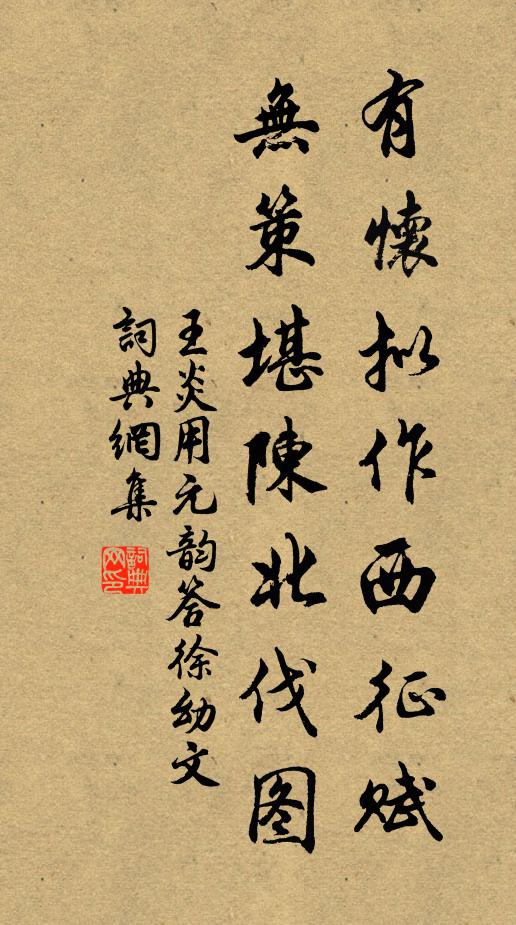 有懷拟作西征賦
無策堪陳北伐图
王炎用元韵答徐幼文
詞典網集
詞典网印